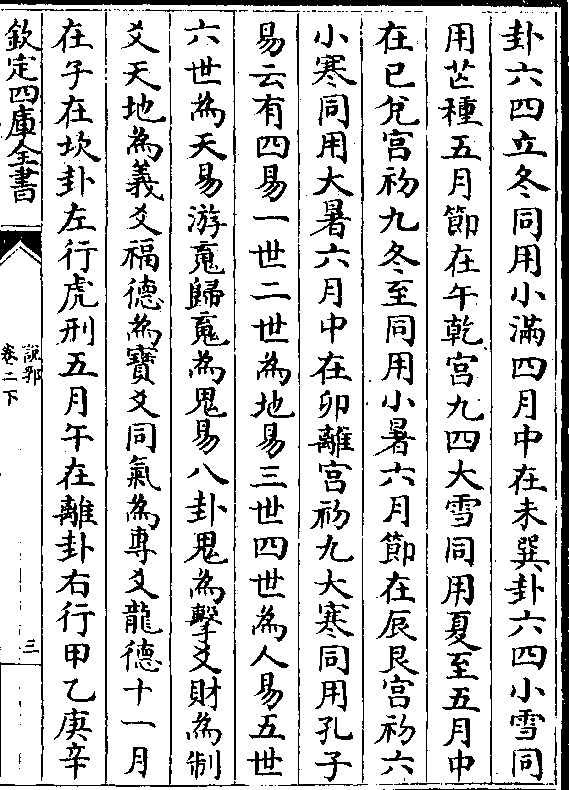 卦六四立冬同用小滿四月中在未巽卦六四小雪同
用芒種五月節在午乾宮九四大雪同用夏至五月中
在已兊宮初九冬至同用小暑六月節在辰艮宮初六
小寒同用大暑六月中在卯離宮初九大寒同用孔子
易云有四易一世二世為地易三世四世為人易五世
六世為天易游䰟歸䰟為鬼易八卦鬼為擊爻財為制
爻天地為義爻福德為寶爻同氣為專爻龍德十一月
在子在坎卦左行虎刑五月午在離卦右行甲乙庚辛
欽定四庫全書
說郛
卷二下
三